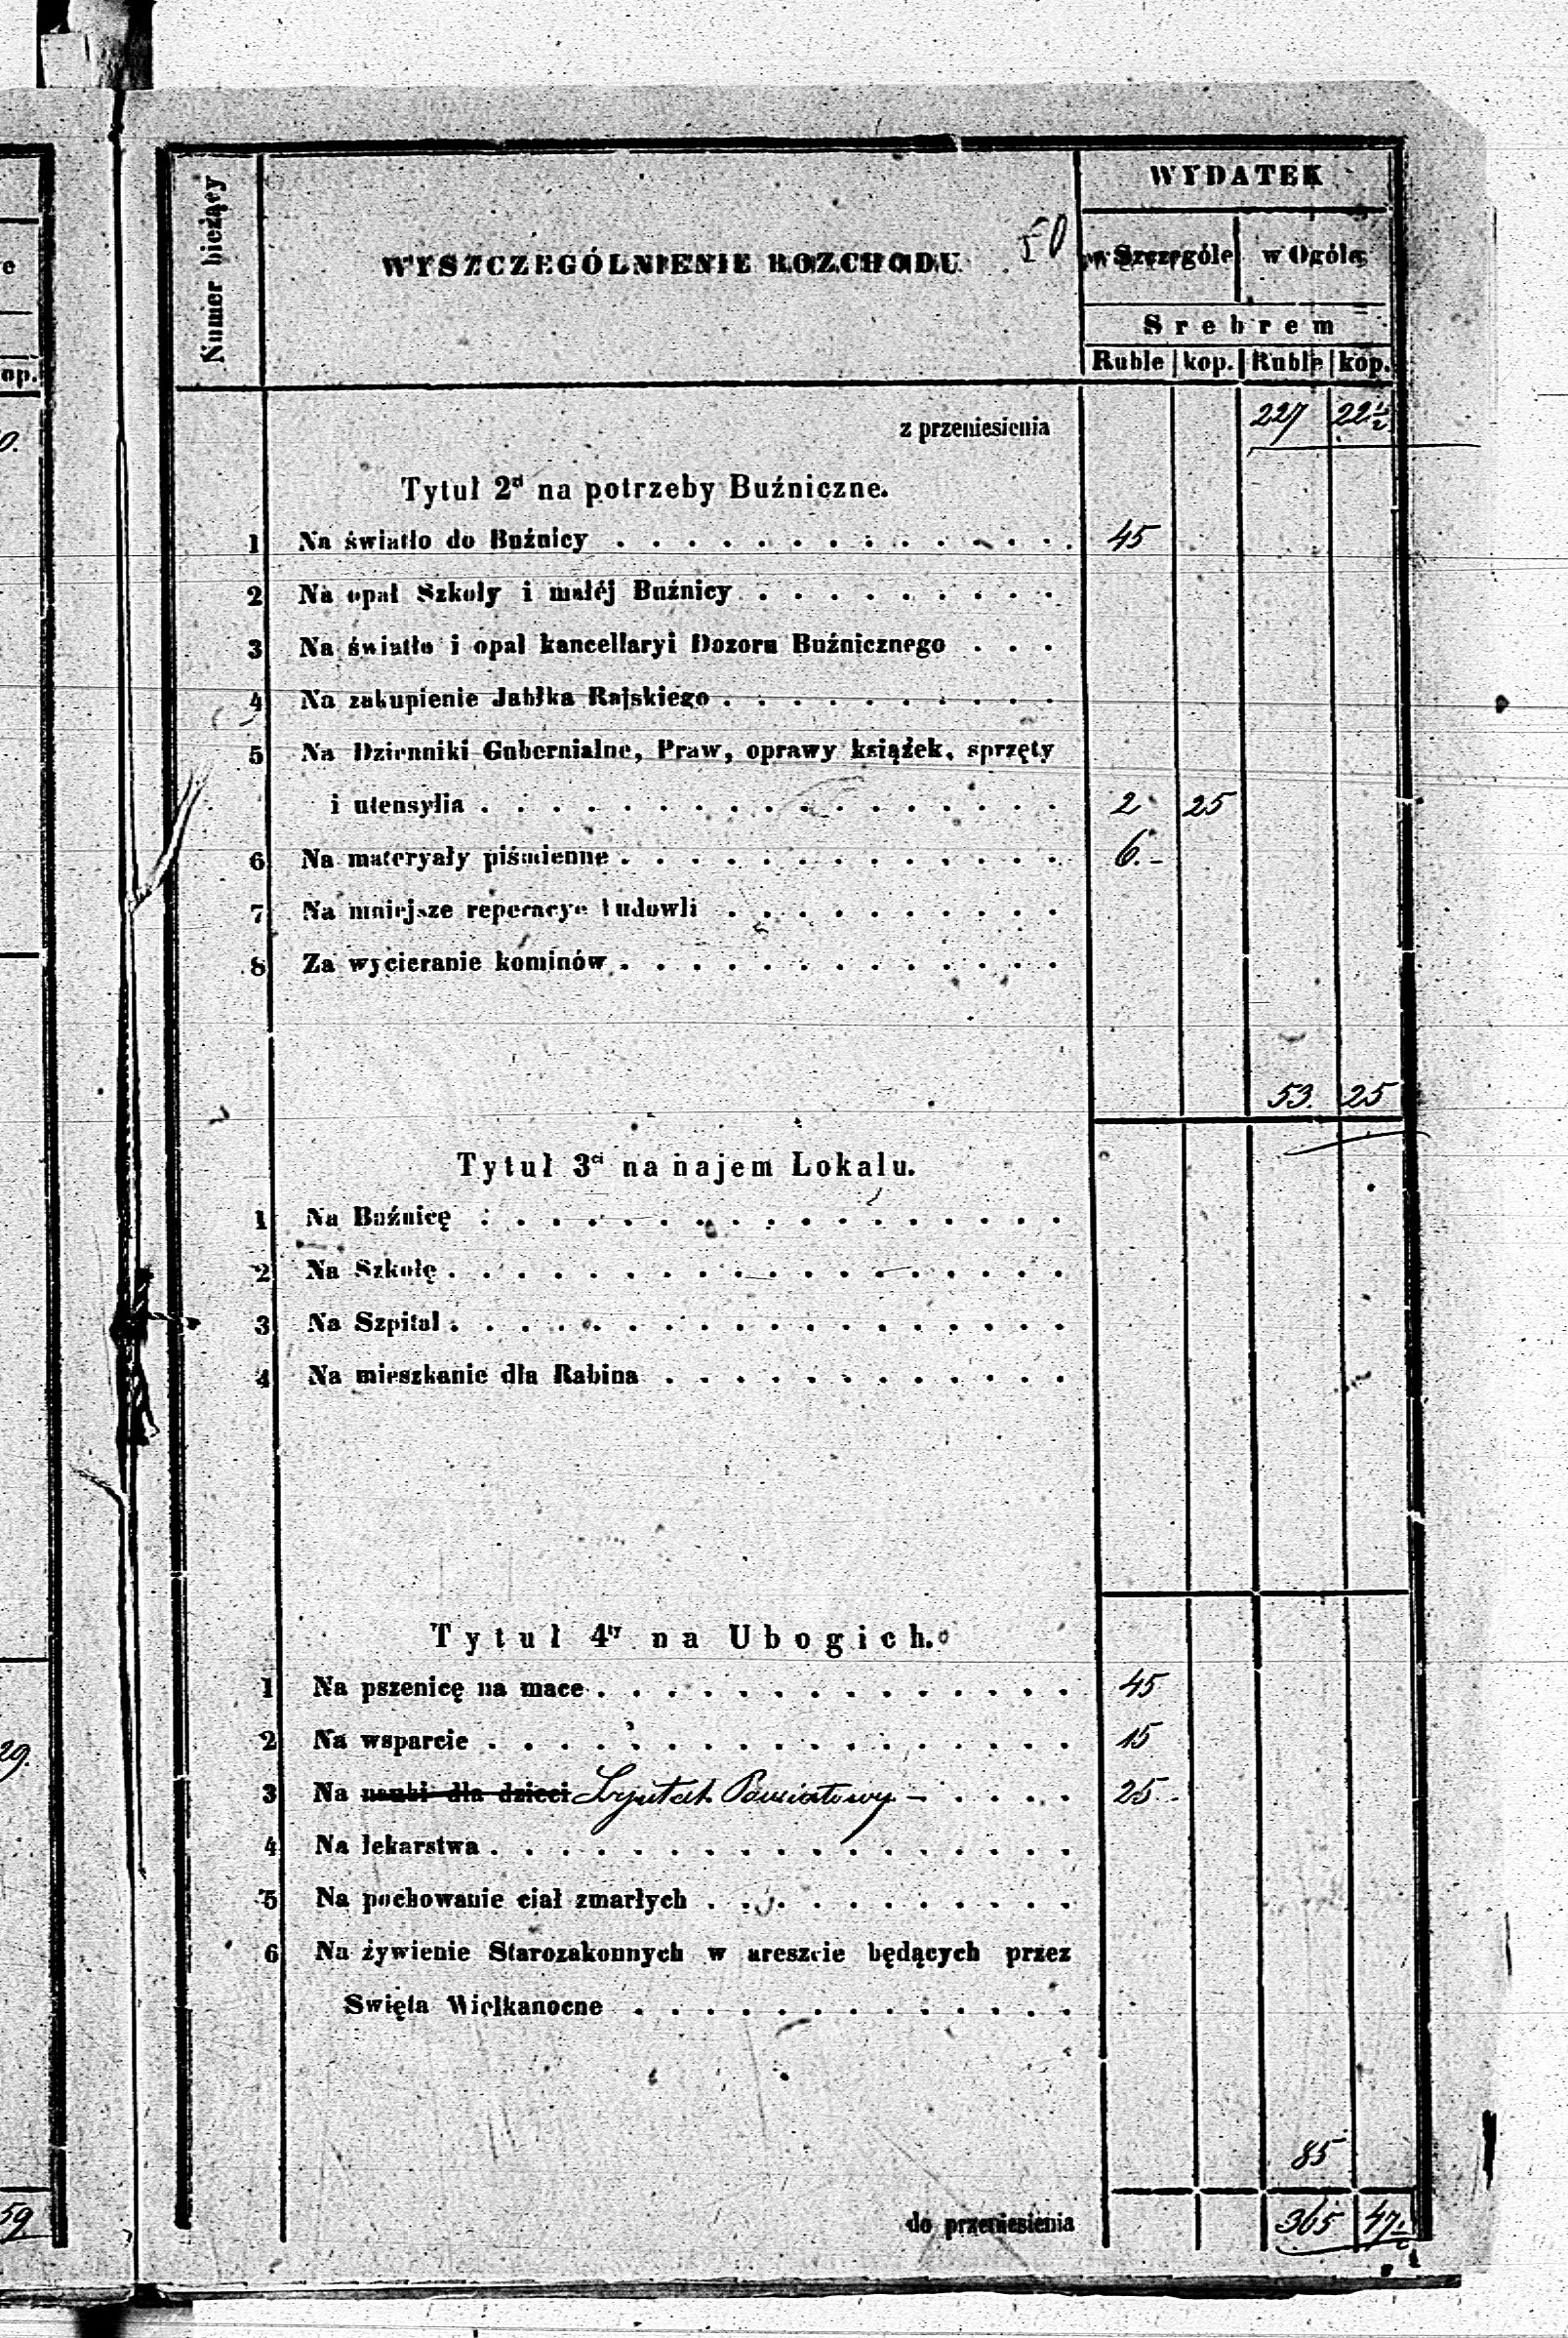 e
op.
0.
29.
59
50
Numer bieżący
WYSZCZEGÓLNIENIE ROZCHODU.
WYDATEK
w Szczególe w Ogóle
Srebrem
Ruble kop. Ruble kop.
z przeniesienia 227 22½
Tytuł 2gi na potrzeby Buźniczne.
1 Na światło do Buźnicy . . . . . . . . . . . . . 45
2 Na opał Szkoły i małéj Buźnicy . . . . . . . . .
3 Na światło i opał kancellaryi Dozoru Buźnicznego . . .
4 Na zakupienie Jabłka Rajskiego . . . . . . . . . .
5 Na Dzienniki Gubernialne, Praw, oprawy książek, sprzęty
i utensylia . . . . . . . . . . . . . . . . . 2 25
6 Na materyały piśmienne . . . . . . . . . . . . . 6.-
7 Na mniejsze reperacye budowli . . . . . . . . . .
8 Za wycieranie kominów . . . . . . . . . . . . .
53. 25
Tytuł 3ci na najem Lokalu.
1 Na Buźnicę . . . . . . . . . . . . . . . . .
2 Na Szkołę . . . . . . . . . . . . . . . . . .
3 Na Szpital . . . . . . . . . . . . . . . . . .
4 Na mieszkanie dla Rabina . . . . . . . . . . . .
Tytuł 4ty na Ubogich.
1 Na pszenicę na mace . . . . . . . . . . . . . . 45
2 Na wsparcie . . . . . . . . . . . . . . . . . 15
3 Na nauki dla dzieci Powiatowy - . . . . 25 -
4 Na lekarstwa . . . . . . . . . . . . . . . . .
5 Na pochowanie ciał zmarłych . . . . . . . . . . .
6 Na żywienie Starozakonnych w areszcie będących przez
Swięta Wielkanocne . . . . . . . . . . . . .
85
do przeniesienia 365 47½